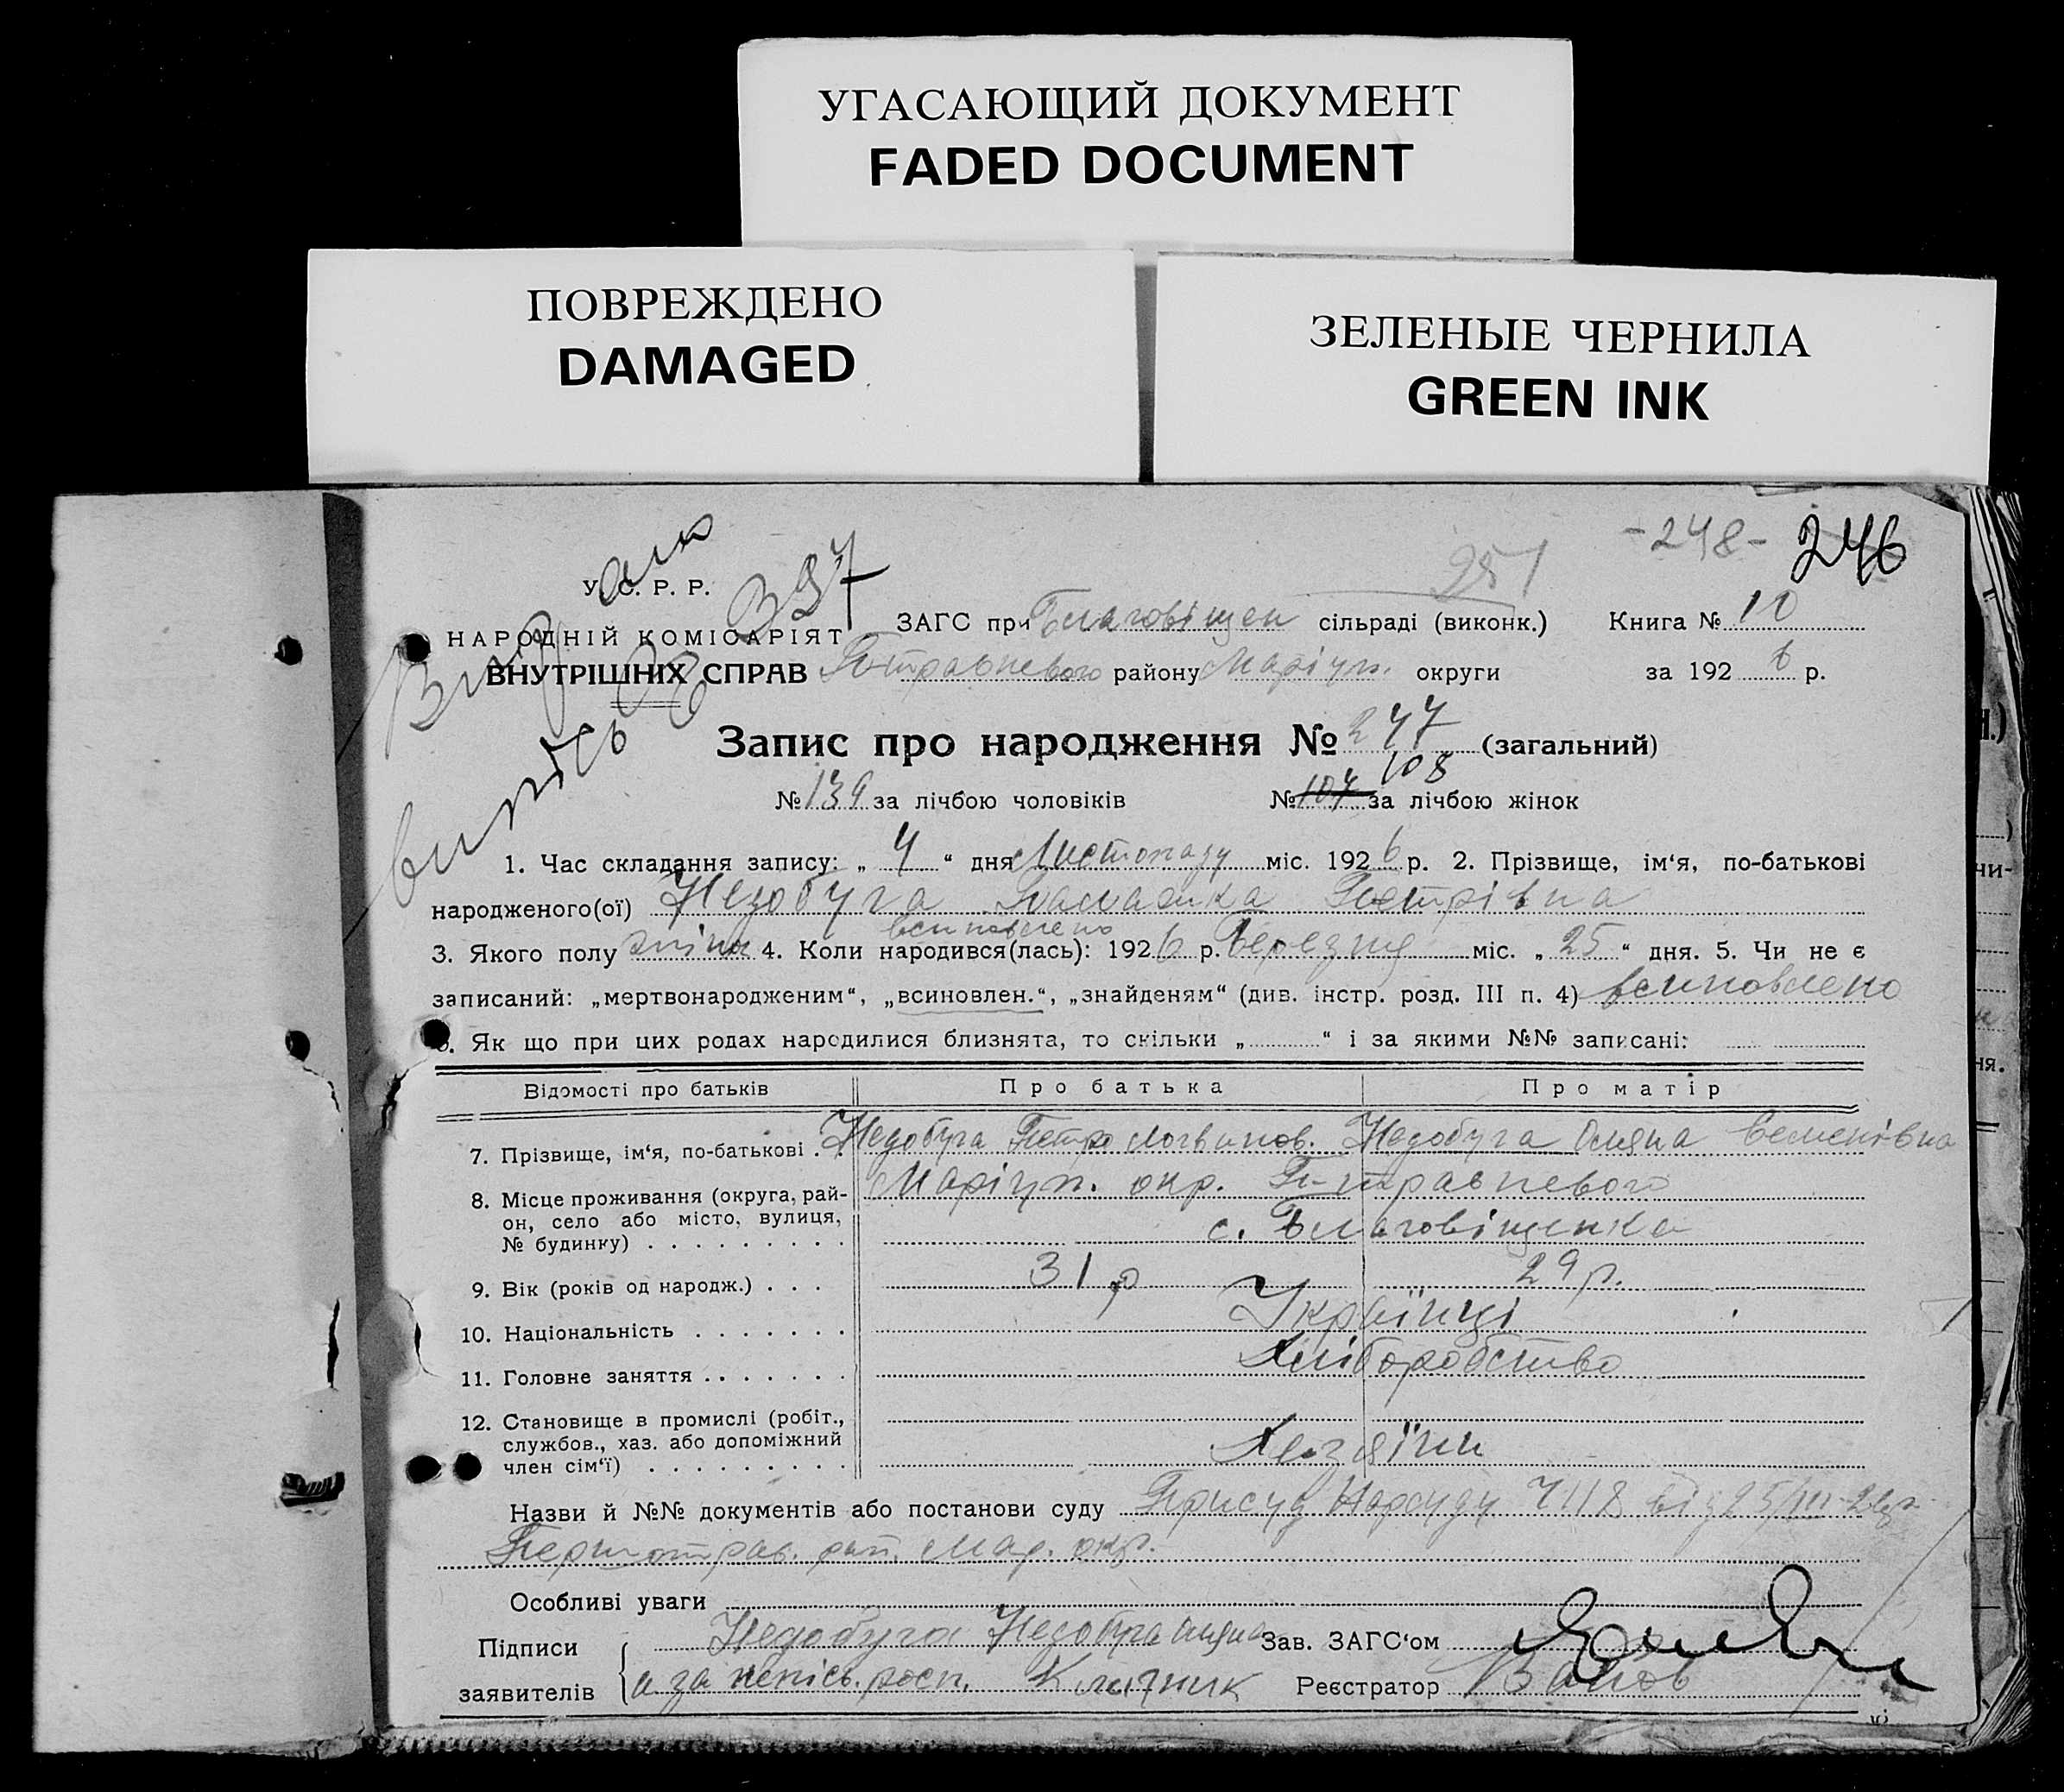 УГАСАЮЩИЙ ДОКУМЕНТ
FADED DOCUMENT
ПОВРЕЖДЕНО
DAMAGED
ЗЕЛЕНЫЕ ЧЕРНИЛА
GREEN INK
-248- 246
251
У. С. Р. Р.
НАРОДНІЙ КОМІСАРІЯТ
ВНУТРІШНІХ СПРАВ
ЗАГС при Благовіщен сільраді (виконк.) Книга № 10
району Маріуп. округи за 1926 р.
Запис про народження № 247 (загальний)
108
№ 139 за лічбою чоловіків № 107 за лічбою жінок
1. Час складання запису: „ 4 “ дня Листопаду міс. 1926 р. 2. Прізвище, ім‘я, по-батькові
народженого(ої) Недобуга Палажка Петрівна
всиновлено
3. Якого полу жіноч 4. Коли народився(лась): 1926 р. Березня міс. „ 25 “ дня. 5. Чи не є
записаний: „мертвонародженим“, „всиновлен.“, „знайденям“ (див. інстр. розд. III п. 4) всиновлено
6. Як що при цих родах народилися близнята, то скільки „ “ і за якими №№ записані:
Відомості про батьків Про батька Про матір
7. Прізвище, ім‘я, по-батькові . Недобуга Петро Логвинов. Недобуга Оляна Семенівна
8. Місце проживання (округа, рай- Маріуп. окр. П-травневого
он, село або місто, вулиця, с. Благовіщенка
№ будинку)
9. Вік (років од народж.) . . . 31 р 29 р.
10. Національність Українці
11. Головне заняття Хліборобство
12. Становище в промислі (робіт.,
службов., хаз. або допоміжний Хозяїни
член сім‘ї)
Назви й №№ документів або постанови суду Присуд Нарсуду 7118 від 25/III-26р.
Першотрав. рай. Мар. окр.
Особливі уваги
Підписи Недобуга Недобуга Оляна Зав. ЗАГС‘ом
заявителів а за непісь. росп. Ключник Реєстратор